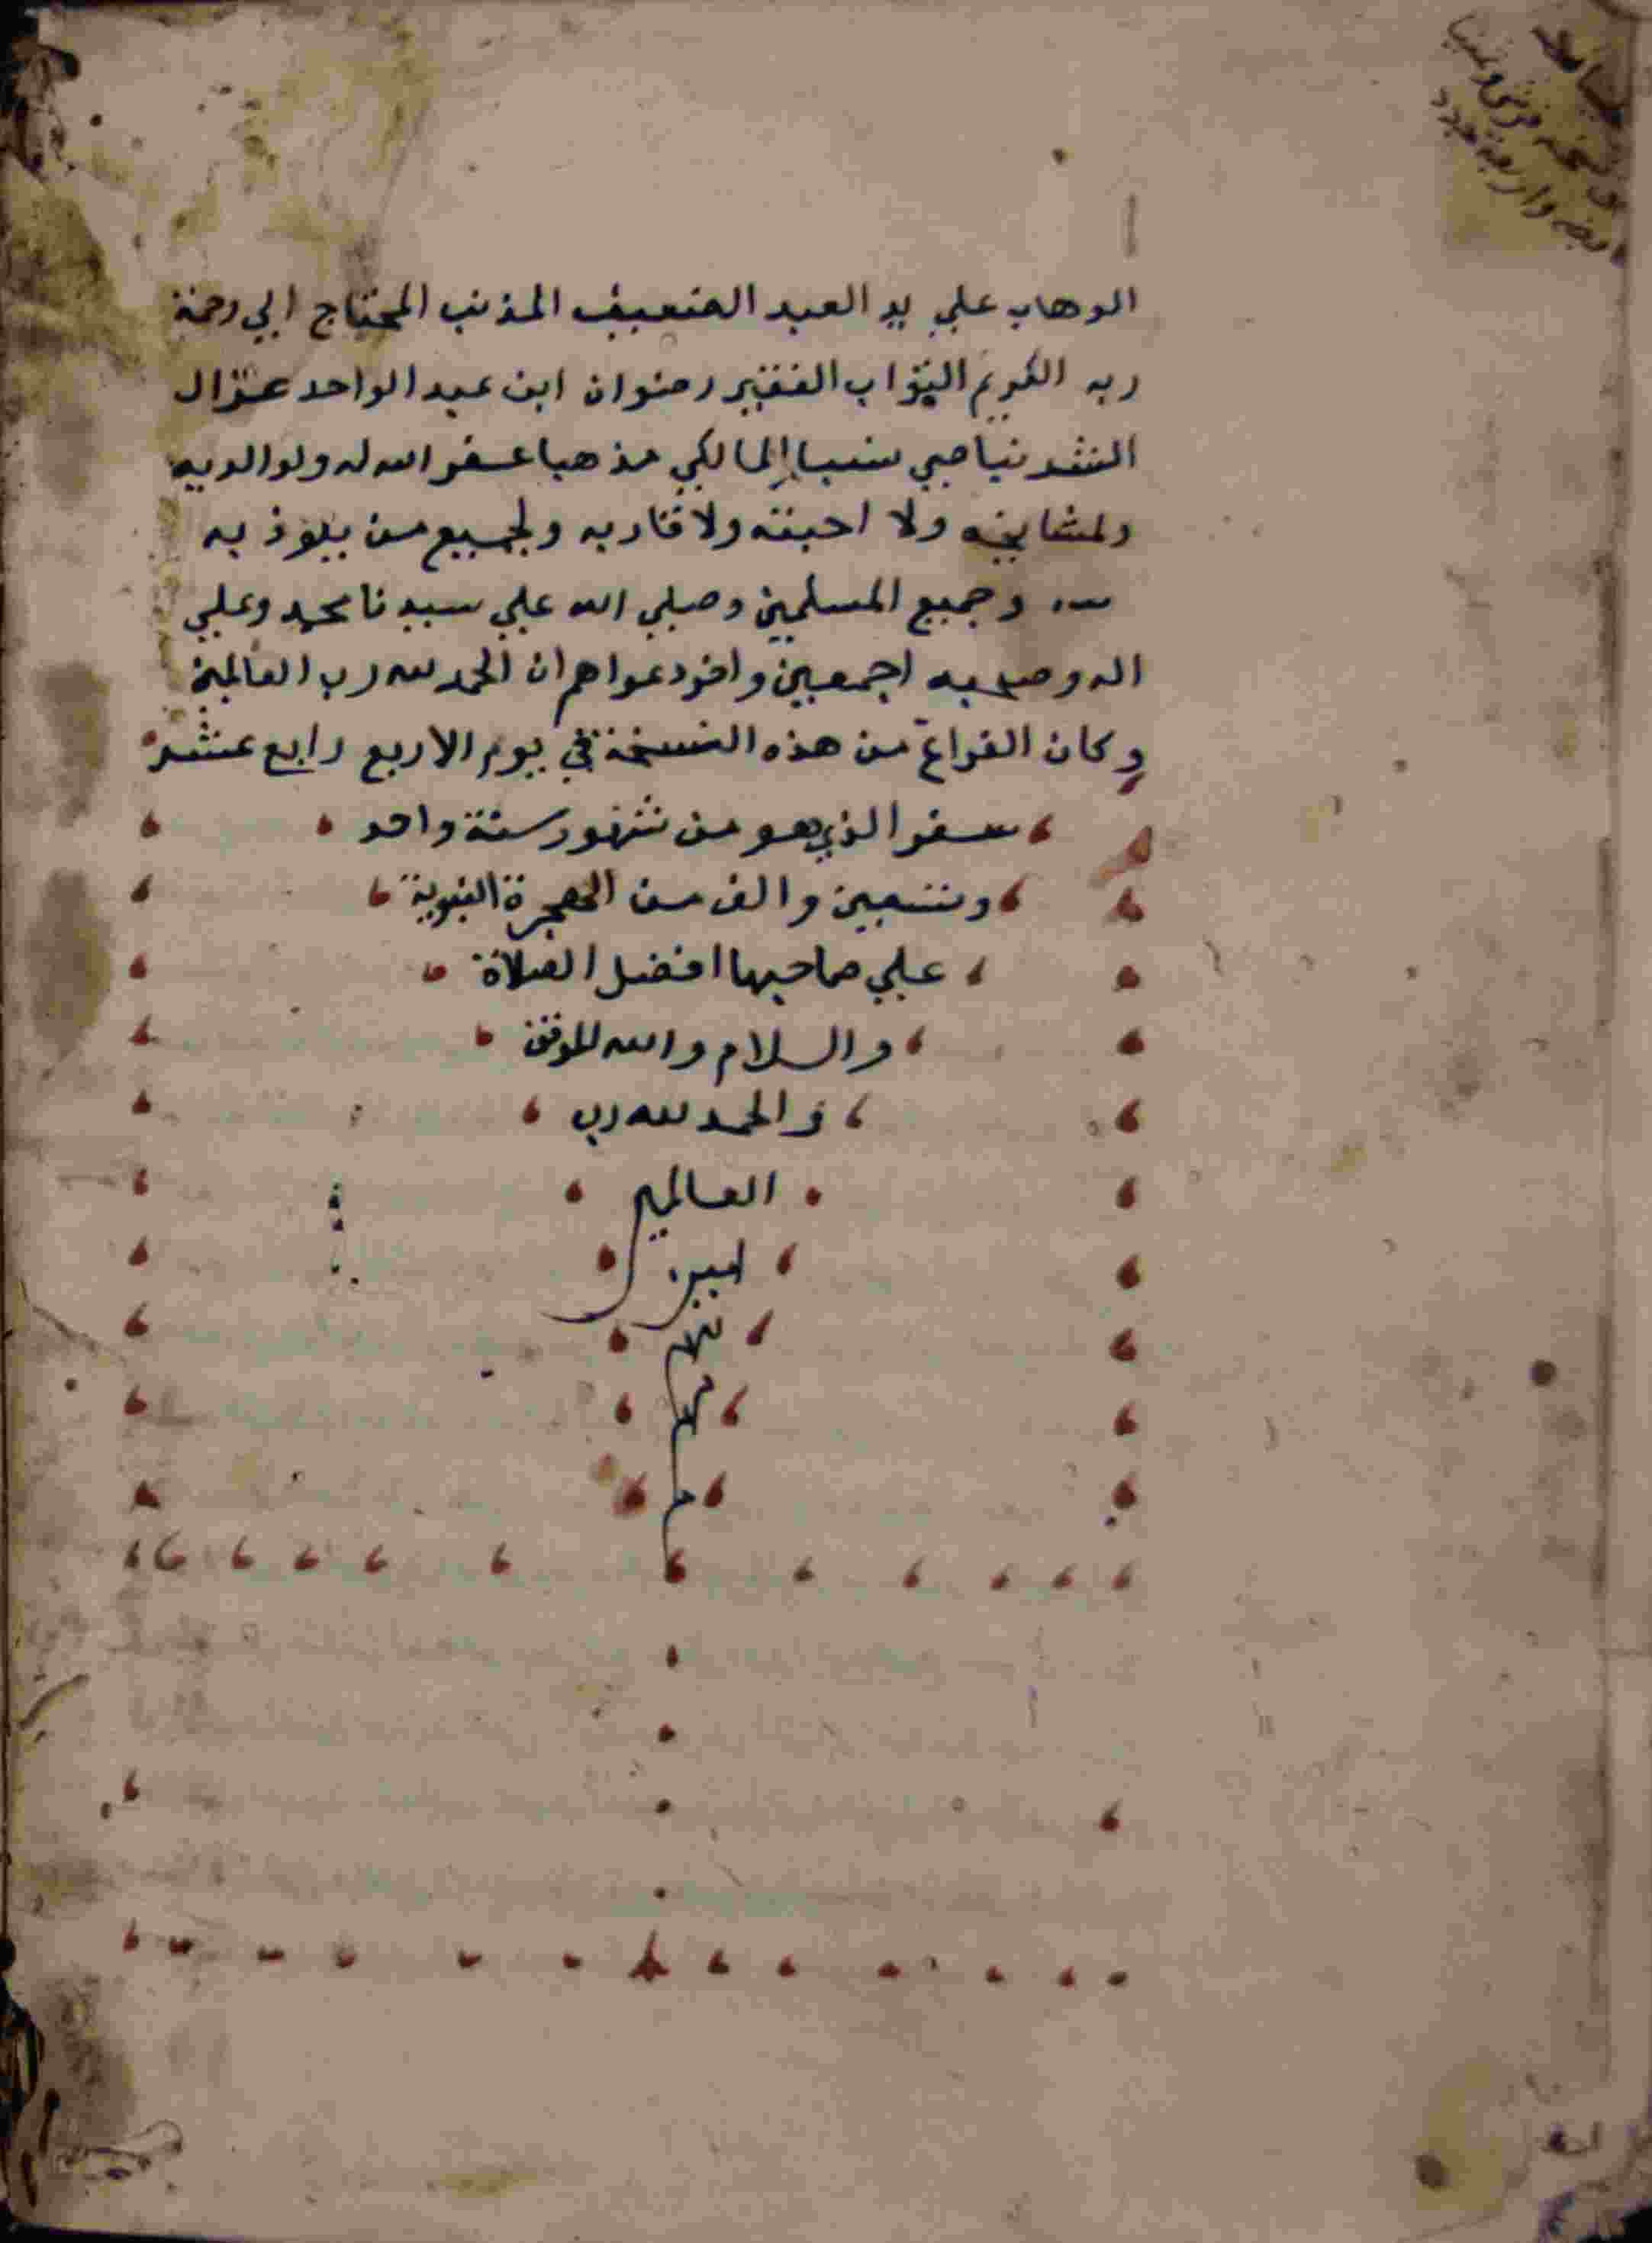 الوهاب علي يد العبد الضعيف المذنب المحتاج الي رحمة
ربه الكريم التواب الفقير رضوان ابن عبد الواحد غزال
المالكي مذهبا غفر الله له ولوالديه
ولمشايخه ولا احبته ولاقاربه ولجميع من يلوذ به
وجميع المسلمين وصلي الله علي سيدنا محمد وعلي
اله وصحبه اجمعين واخر دعواهم ان الحمد لله رب العالمين
وكان الفراغ من هذه النسخة في يوم الاربع رابع عشر
سفر الذي هو من شهور سنة واحد
وتسعين والف من الهجرة النبوية
علي صاحبها افضل الصلاة
والسلام والله الموفق
والحمد لله رب
العالمين
امين